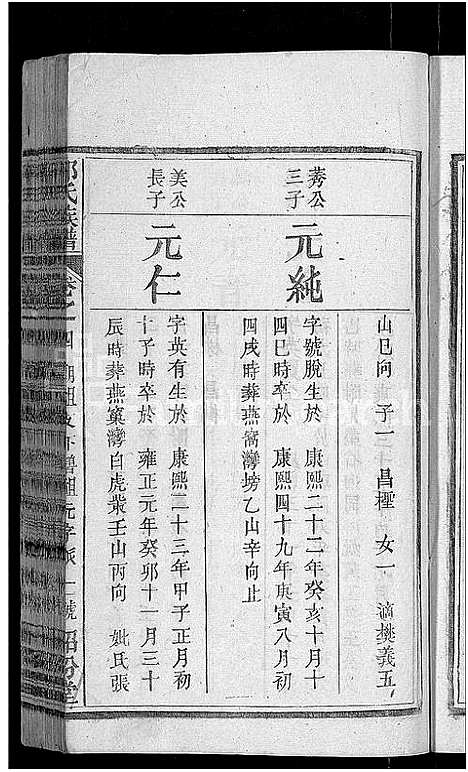 山巳向 子一 昌桱 女一 適樊義五
莠公三子
元純
字號脫生於 康熙二十二年癸亥十月十
四巳時卒於 康熙四十九年庚寅八月初
四戌時葬燕窩灣塝乙山辛向止
美公長子
元仁
字英有生於 康熙二十三年甲子正月初
十子時卒於 雍正元年癸卯十一月三十
辰時葬燕窠灣白虎嘴壬山丙向 妣氏張
氏族譜